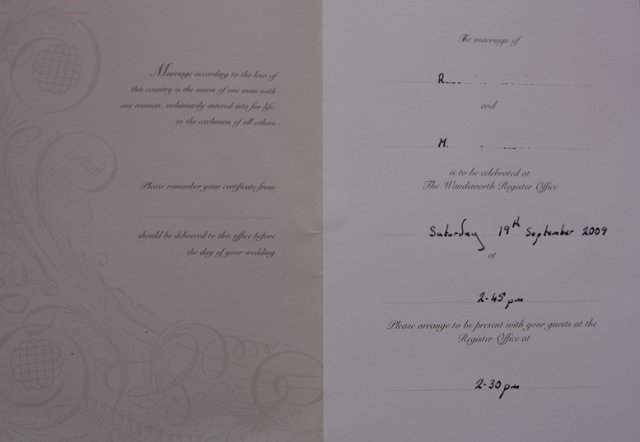 Marriage according to the law of
this country is the union of one man with
one woman, voluntarily entered into for life,
to the exclusion of all others
Please remember your certificate from
should be delivered to this office before
the day of your wedding
The marriage of
R
and
M
is to be celebrated at
The Wandsworth Register Office
Saturday 19th September 2009
at
2-45 pm
Please arrange to be present with your guests at the
Register Office at
2-30 pm